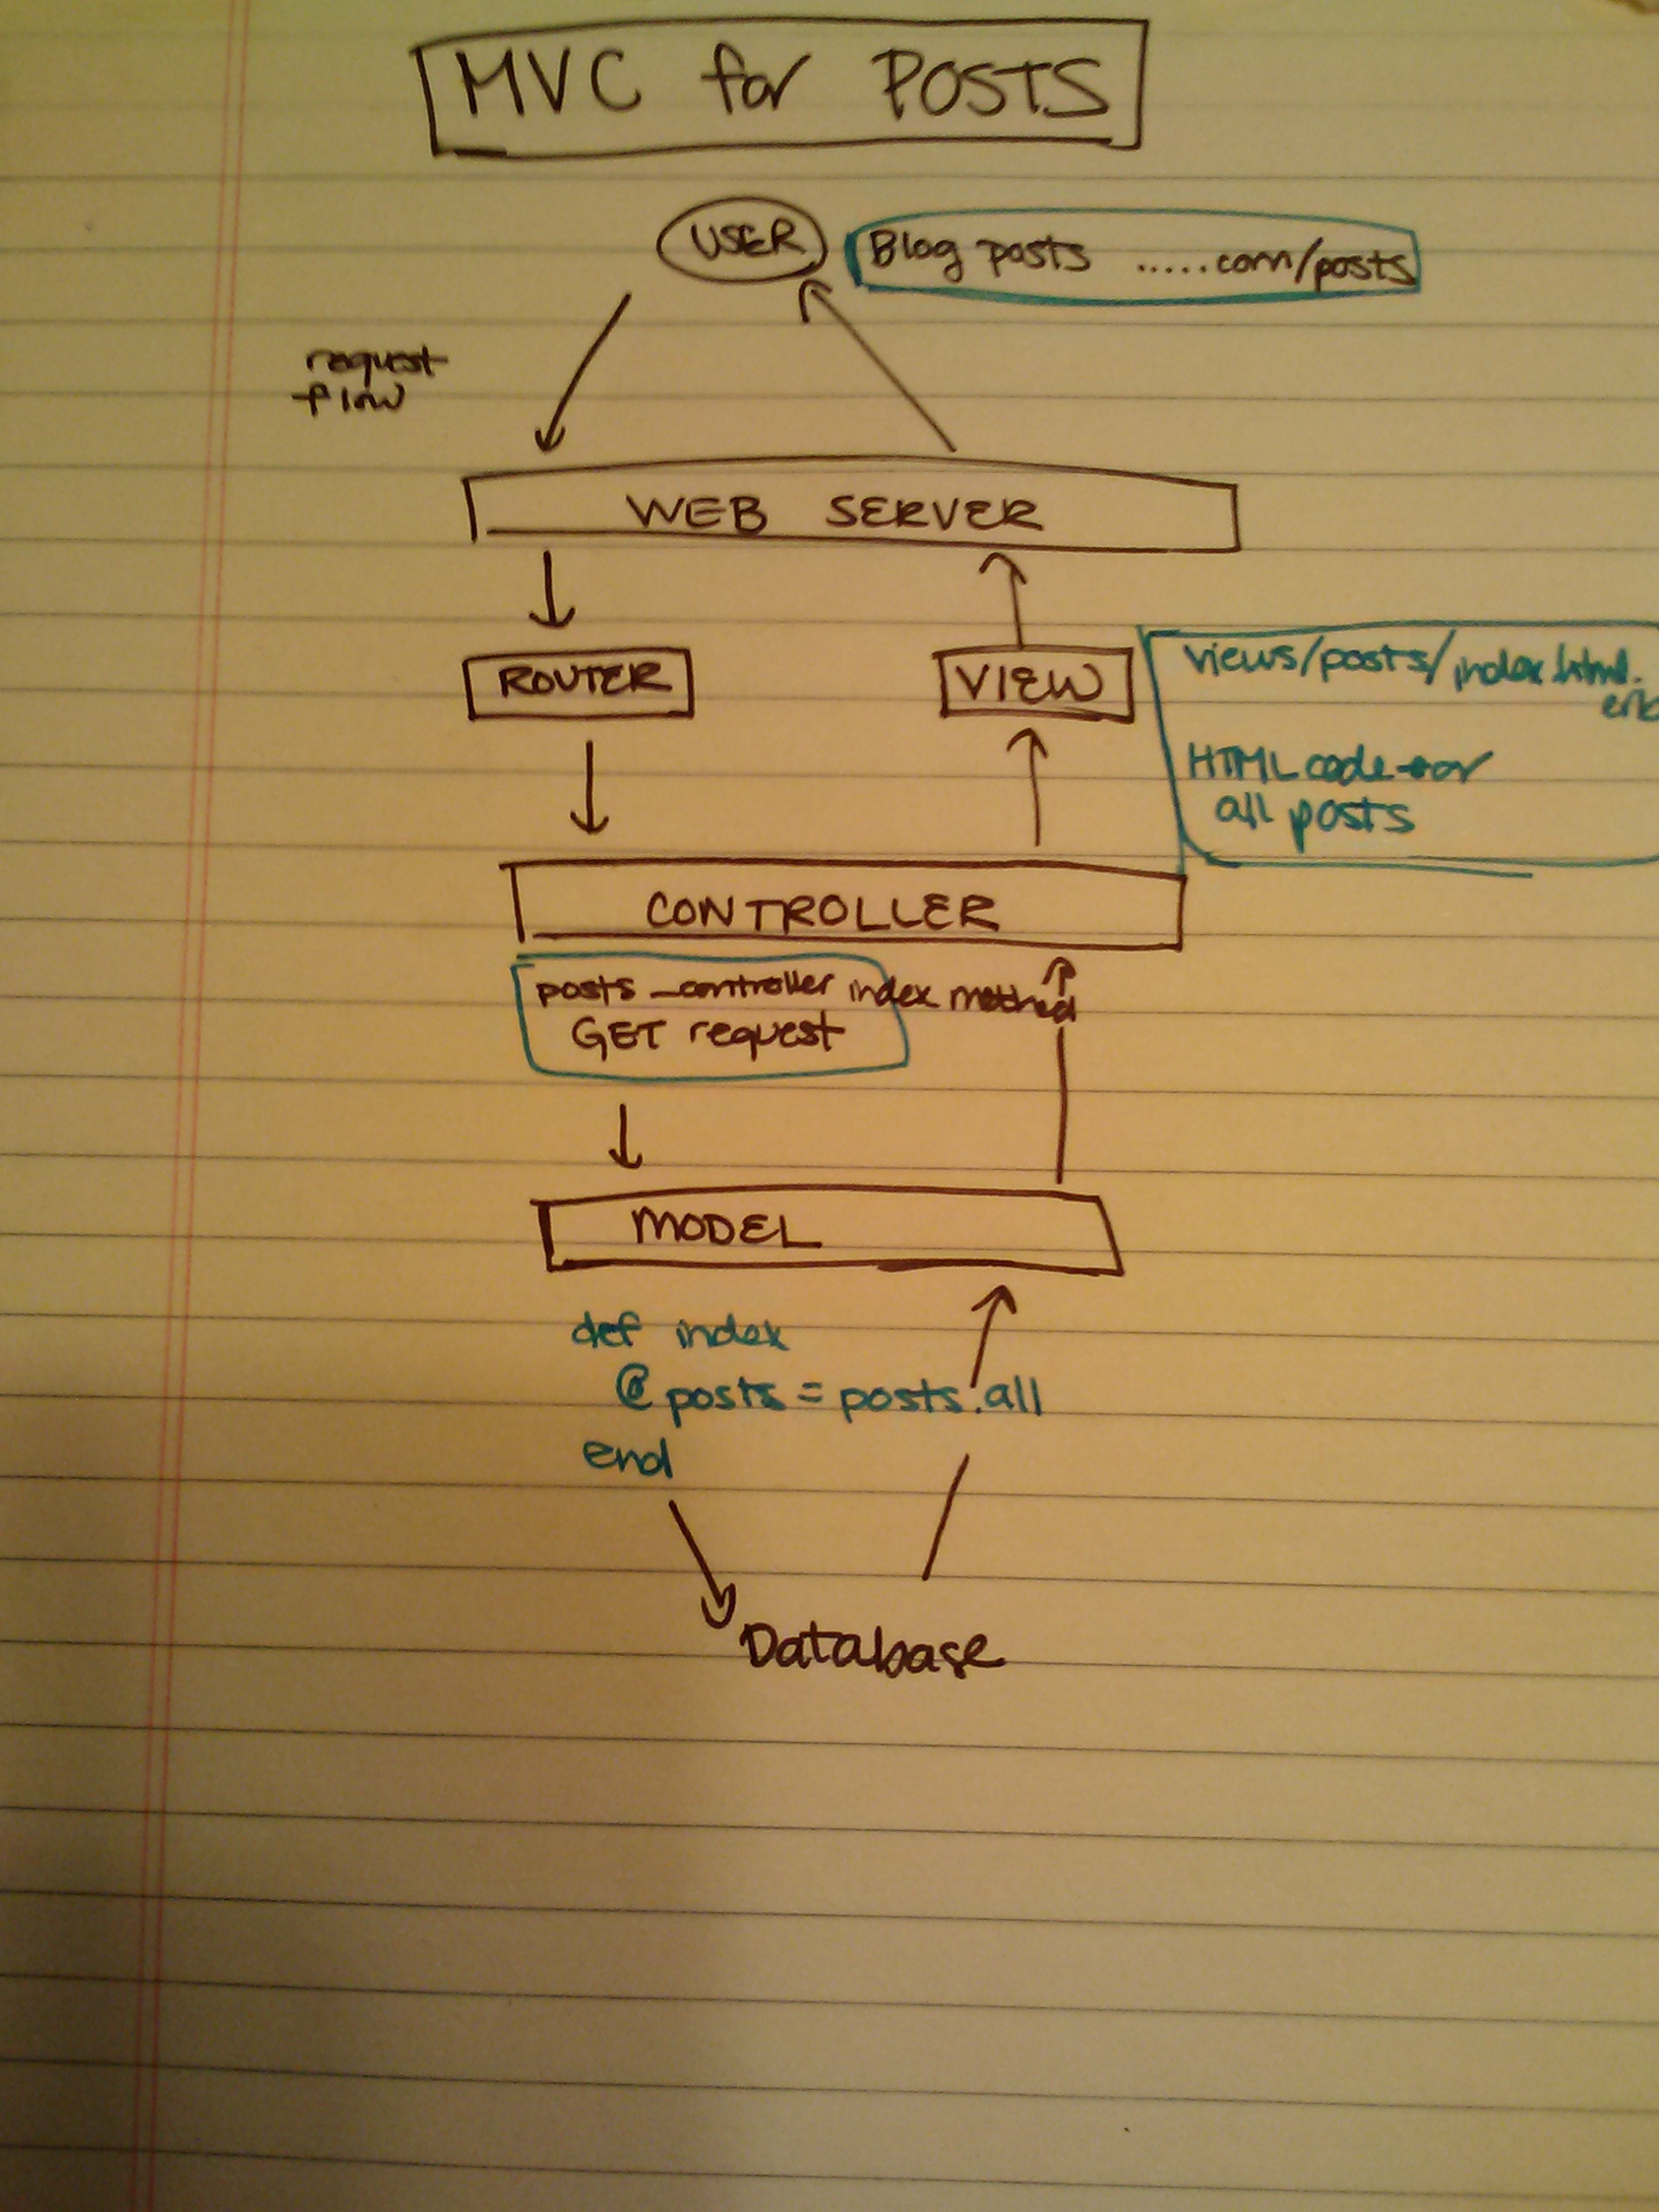 MVC for POSTS
USER
Blog posts .....com/posts
request
flow
WEB SERVER
ROUTER
VIEW
views/posts/index.html.
erb
HTML code for
all posts
CONTROLLER
posts_controller index method
GET request
MODEL
def index
@posts = posts.all
end
Database